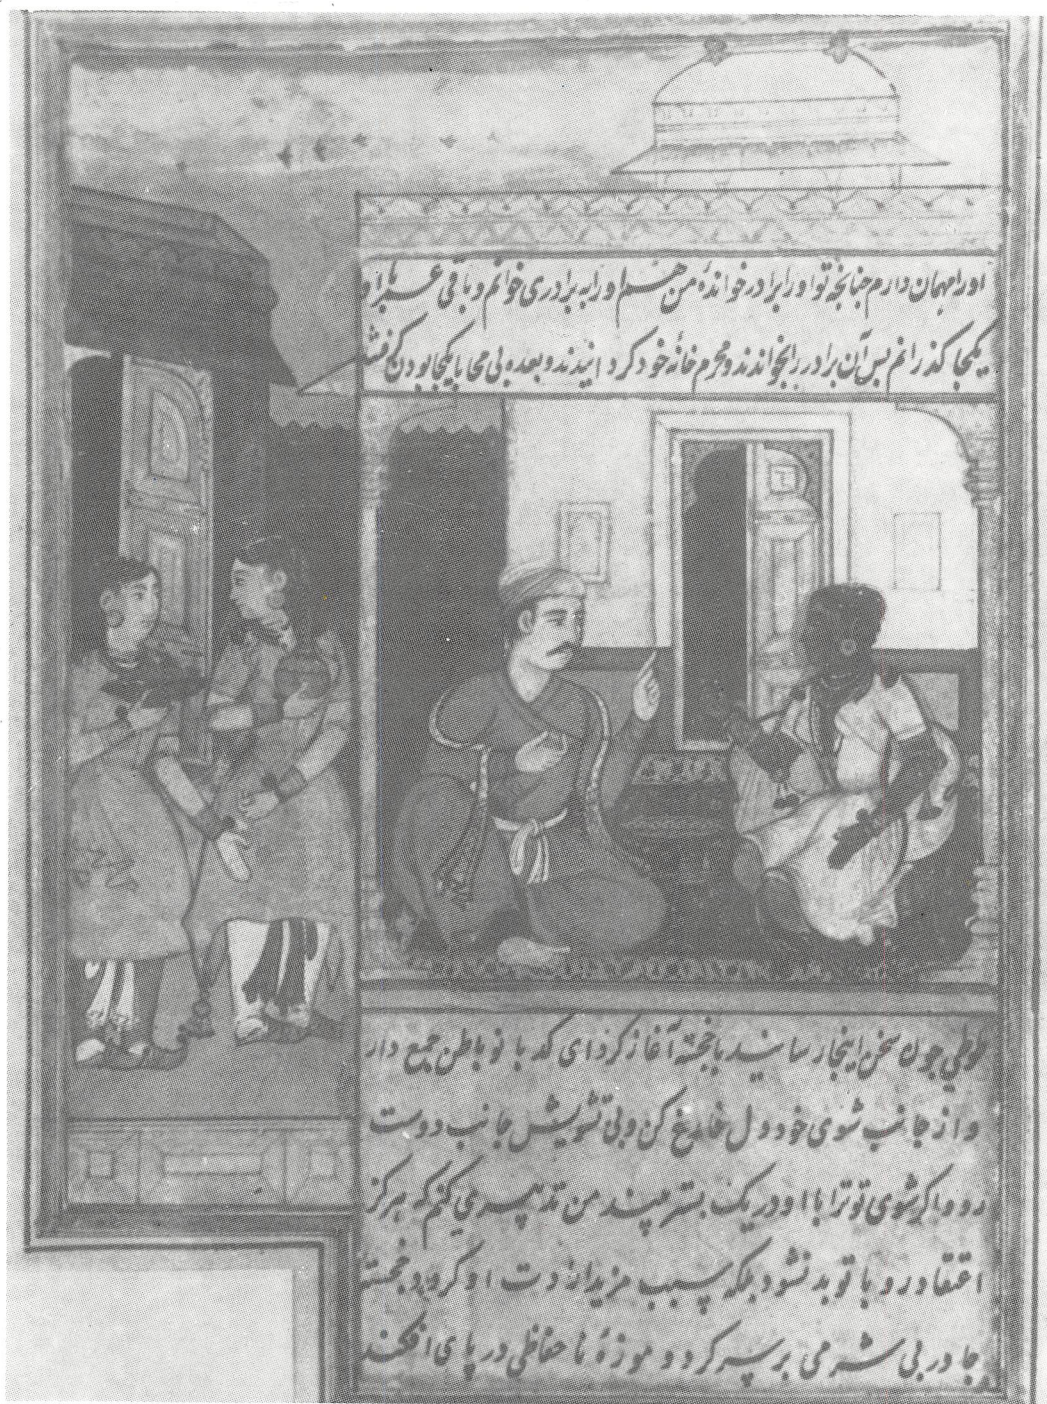 اورا مهمان دارم چنانچه تو اورا برادر خواندهٔ من هم اورا به برادری خوانم و باقی عمر با او
یکجا گذرانم پس آن برادر را بخواندند و محرم خانهٔ خود گردانیدند و بعده بی محابا یکجا بودن گرفتند
طوطی چون سخن اینجا رسانید با خجسته آغاز کرد ای کدبانو باطن جمع دار
و از جانب شوی خود دل فارغ کن و بی تشویش جانب دوست
رو و اگر شوی تو ترا با او در یک بستر بیند من تدبیر می کنم که هرگز
اعتقاد رو با تو بد نشود بلکه سبب مزید ارادت او گردد خجسته
چادر بی شرمی بر سر کرد و موزهٔ ناحفاظی در پای افکند